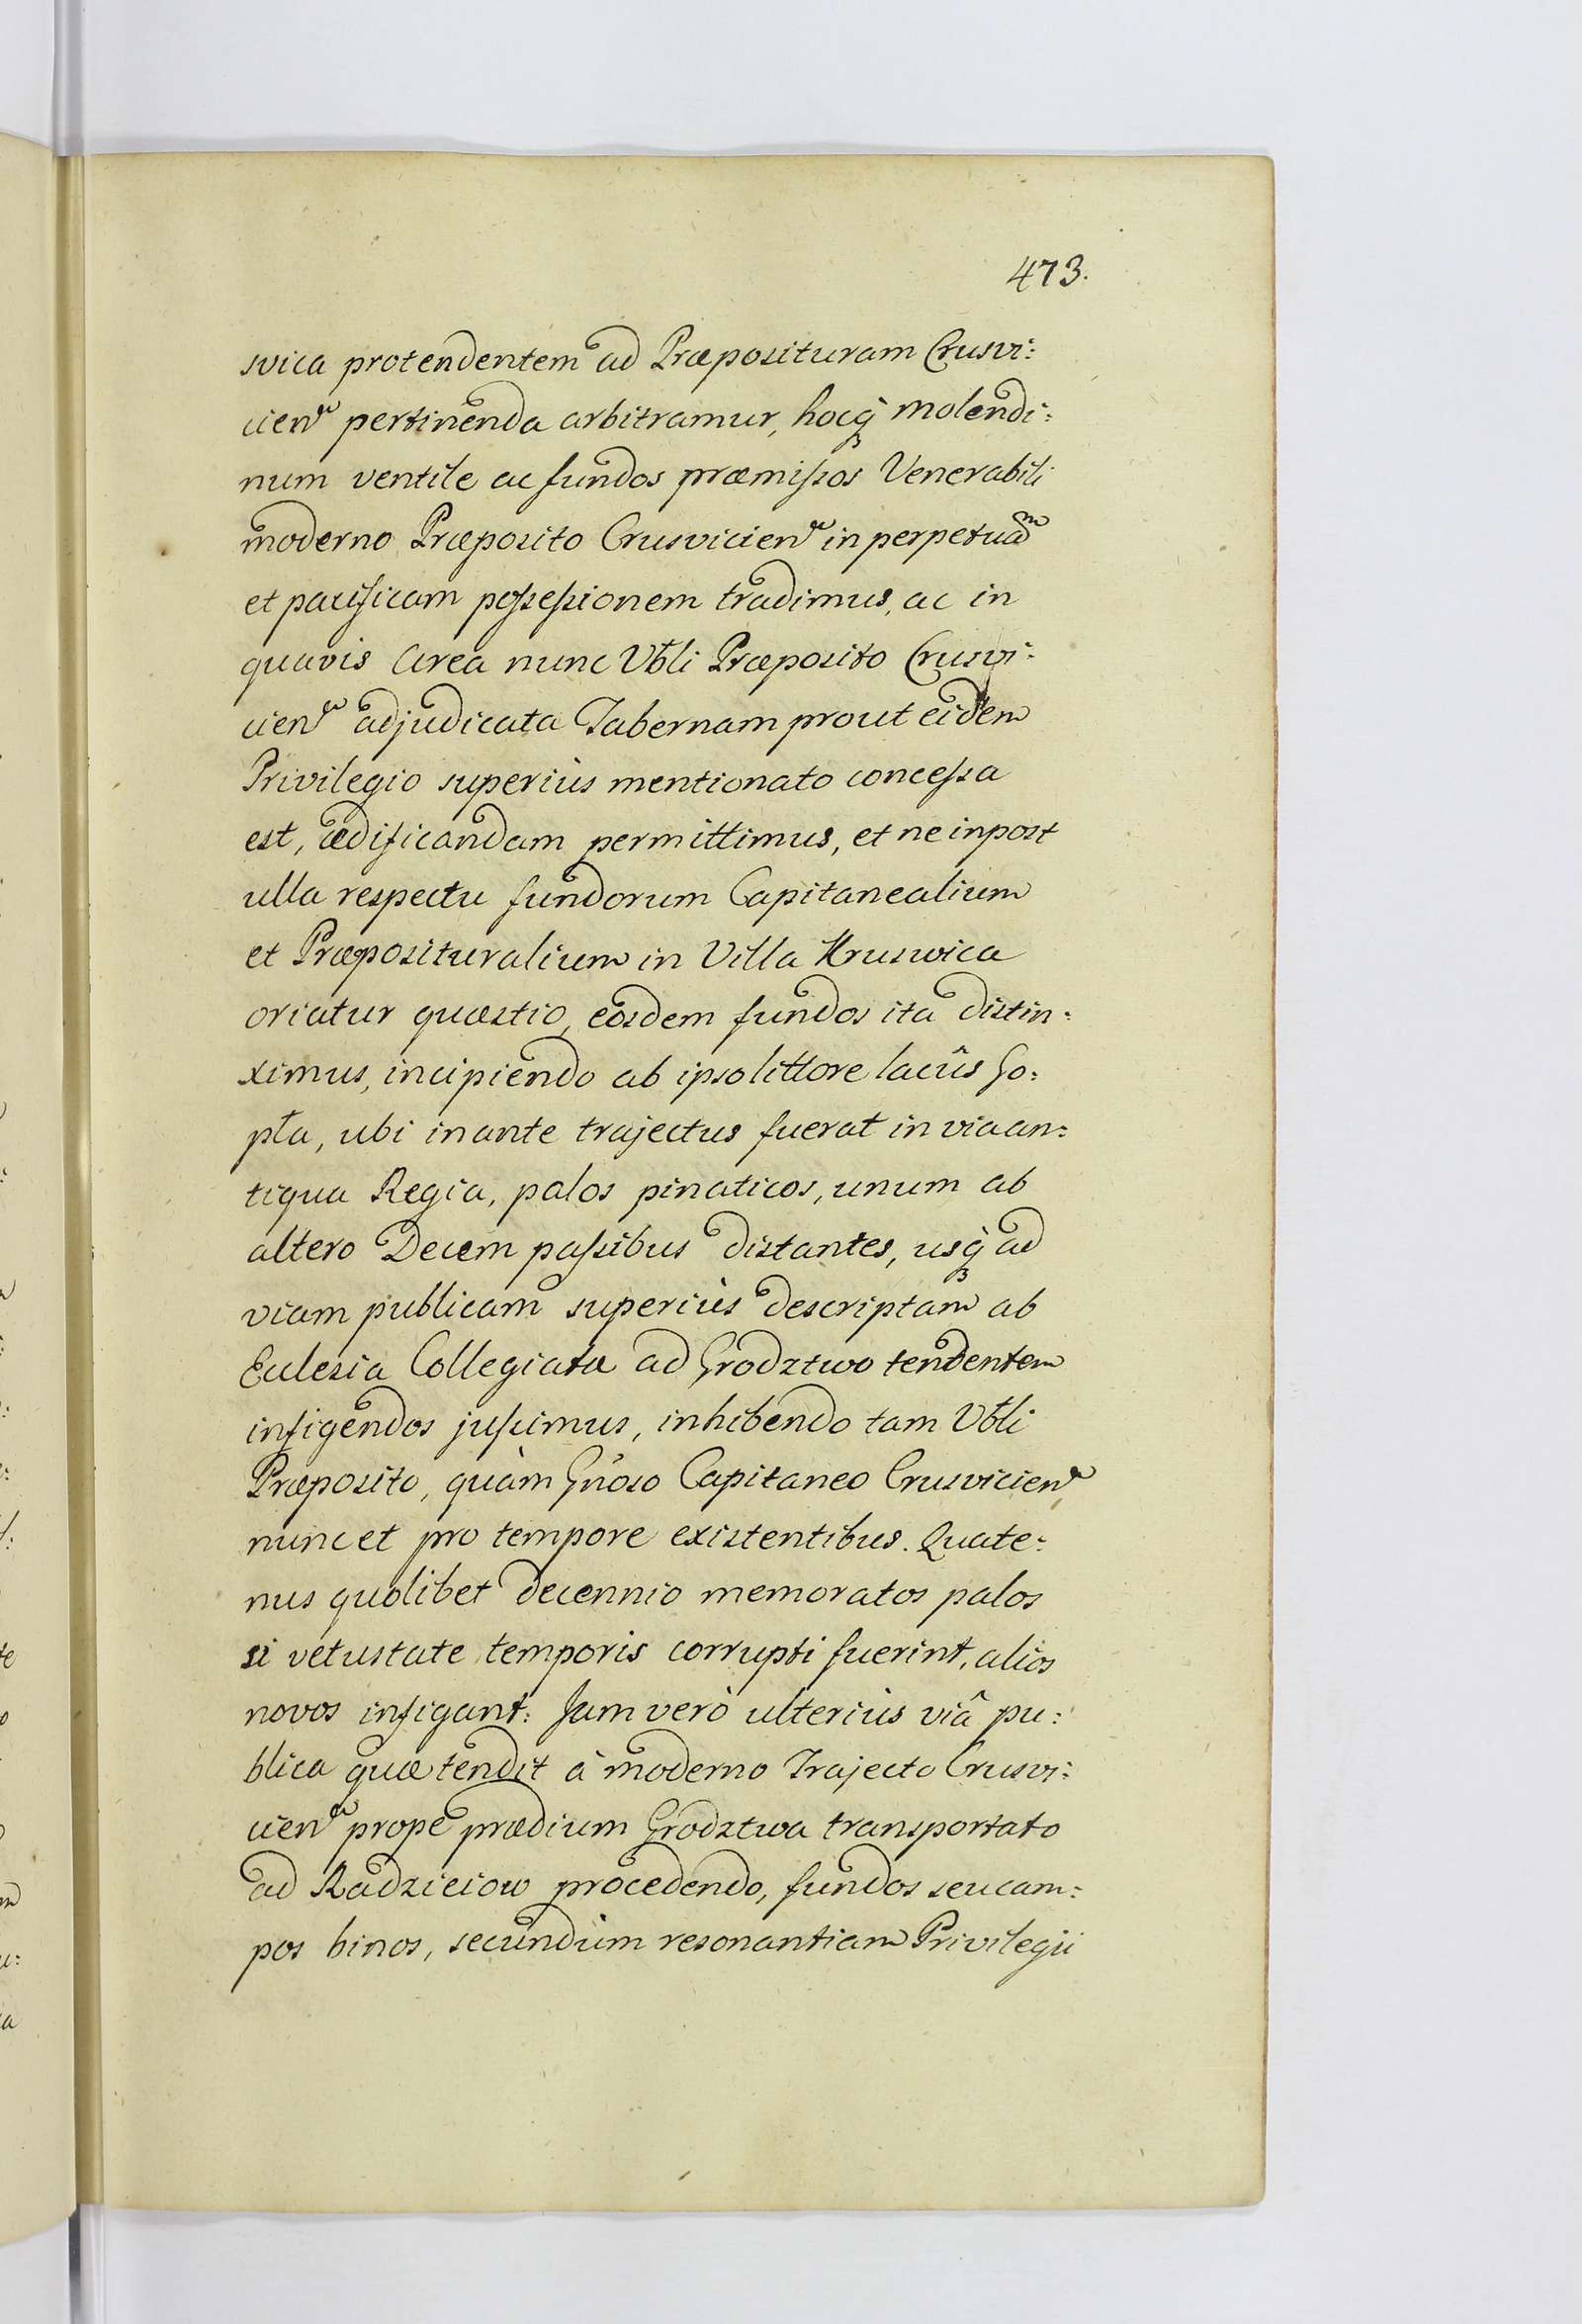 473.
svica protendentem ad Præposituram Crusvi:
cien pertinenda arbitramur, hocq̃ molendi:
num ventile ac fundos præmissos Venerabili
moderno Præposito Crusvicien in perpetuam
et pacificam possessionem tradimus, ac in
quavis Area nunc Vbli Præposito Crusvi:
cien adjudicata Tabernam prout eidem
Privilegio superiùs mentionato concessa
est, ædificandam permittimus, et ne inpost
ulla respectu fundorum Capitanealium
et Præposituralium in Villa Kruswica
oriatur quæstio, eosdem fundos ita distin:
ximus, incipiendo ab ipso littore lacûs Go:
pła, ubi inante trajectus fuerat in via an:
tiqua Regia, palos pinaticos, unum ab
altero Decem passibus distantes, usq̃ ad
viam publicam superiùs descriptam ab
Eclesia Collegiata ad Grodztwo tendentem
infigendos jussimus, inhibendo tam Vbli
Præposito, quàm Gnoso Capitaneo Crusvicien
nunc et pro tempore existentibus. Quate:
nus quolibet decennio memoratos palos
si vetustate temporis corrupti fuerint, alios
novos infigant: Jam verò ulteriùs viâ pu:
blica quæ tendit à moderno Trajecto Crusvi:
cien prope prædium Grodztwa transportato
ad Radzieiow procedendo, fundos seu cam:
pos binos, secundùm resonantiam Privilegii